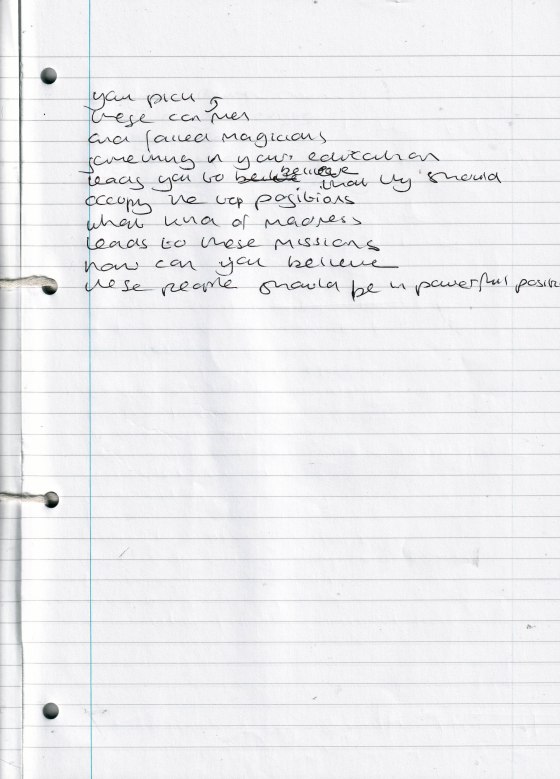 you pick
these con men
and failed magicians
something in your education
leads you to believe that they should
occupy the top positions
what kind of madness
leads to these missions
how can you believe
these people should be in powerful posit